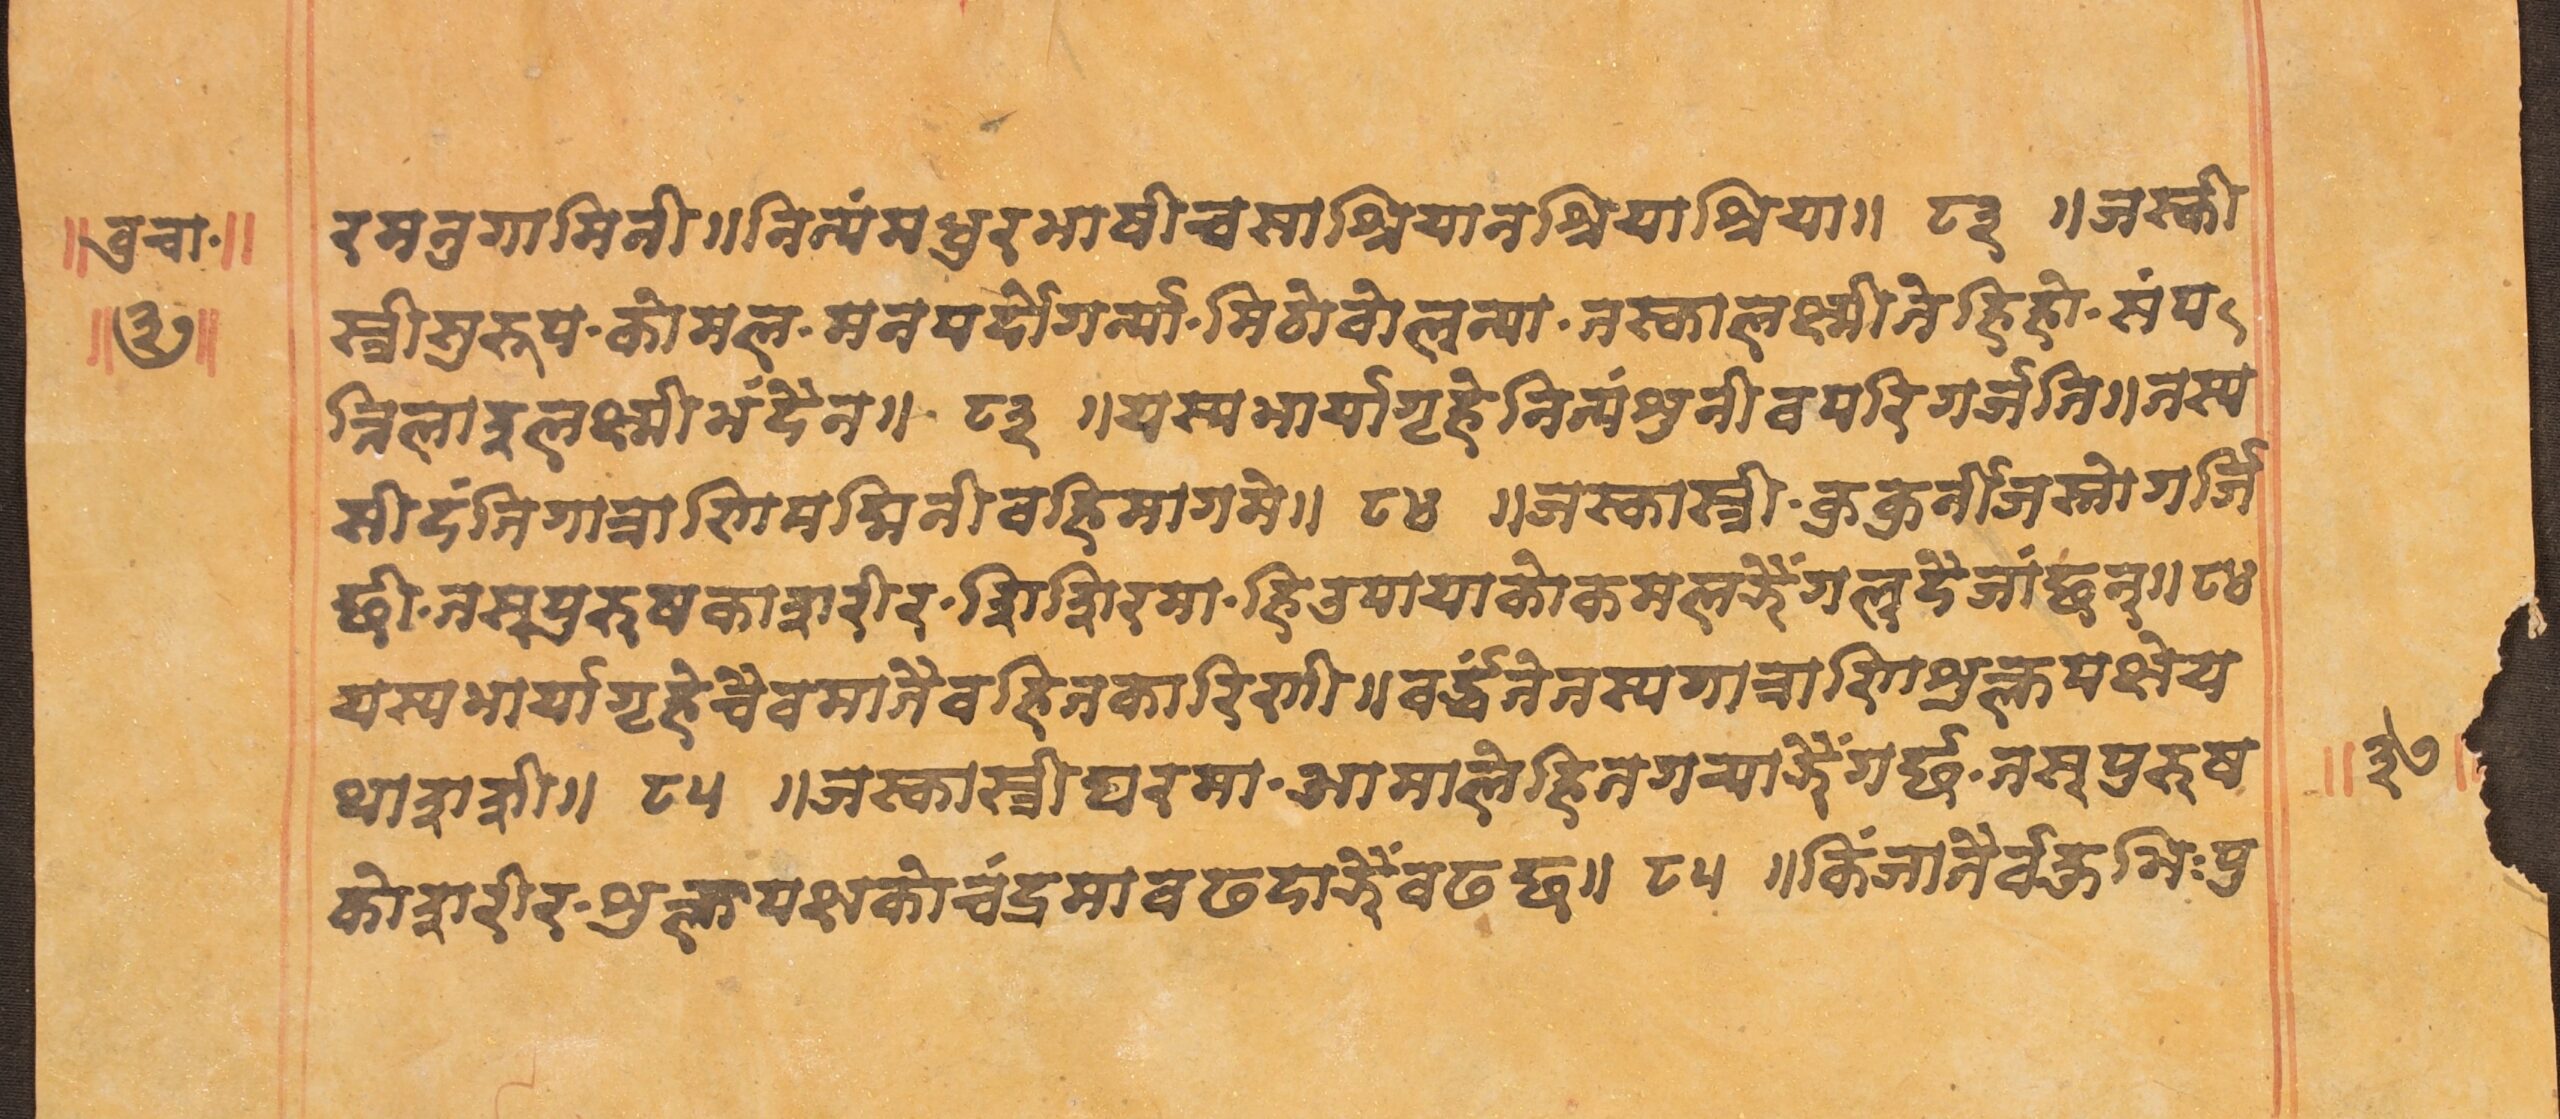 ॥वृचा॰॥
॥३७॥
रमनुगामिनी॥नित्यंमधुरभाषीचसाश्रियानश्रियाश्रिया॥ ८३ ॥जस्की
स्त्रीसुरूप॰कोमल॰मनपर्दोगर्न्या॰मिठोवोलन्या॰तस्कालक्ष्मीतेहिहो॰संपऽ
त्तिलाइलक्ष्मीभंदैन॥ ८३ ॥यस्यभार्यागृहेनित्यंशुनीवपरिगर्जति॥तस्य
सीदंतिगात्राणिपद्मिनीवहिमागमे॥ ८४ ॥जस्कास्त्री॰कुकुर्नीजस्तोगर्जि
छी॰तस्पुरुषकाशरीर॰शिशिरमा॰हिउपायाकोकमलझैंगल्दैजांछन्॥८४
यस्यभार्यागृहेचैवमातैवहितकारिणी॥वर्द्धंतेतस्यगात्राणिशुक्लपक्षेय
थाशशी॥ ८५ ॥जस्कास्त्रीघरमा॰आमालेहितगर्‍याझैंगर्छ॰तस्पुरुष
कोशरीर॰शुक्लपक्षकोचंद्रमावढदाझैंवढछ॥ ८५ ॥किंजातैर्वहुभिःपु
॥३७॥